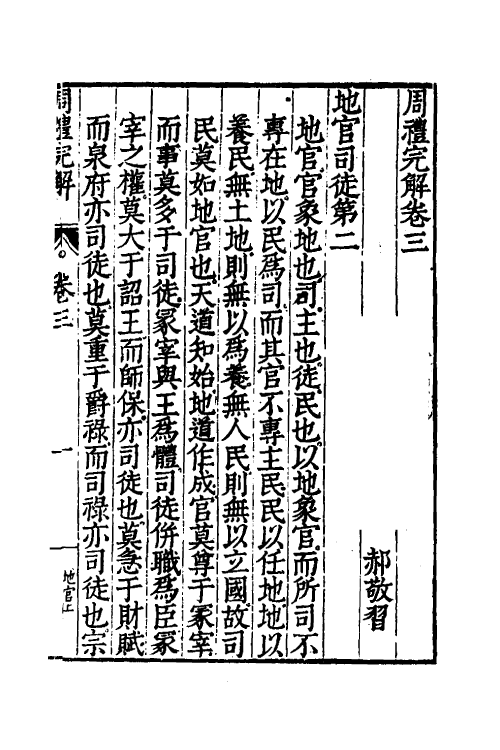 周禮完解卷三
郝敬習
地官司徒第二
地官官象地也司主也徒民也以地象官而所司不
專在地以民爲司而其官不專主民民以任地地以
養民無土地則無以爲養無人民則無以立國故司
民莫如地官也天道知始地道作成官莫尊于冢宰
而事莫多于司徒冢宰與王爲體司徒併職爲臣冢
宰之權莫大于詔王而師保亦司徒也莫急于財賦
而泉府亦司徒也莫重于爵祿而司祿亦司徒也宗
周禮完解
卷三
一
地官上